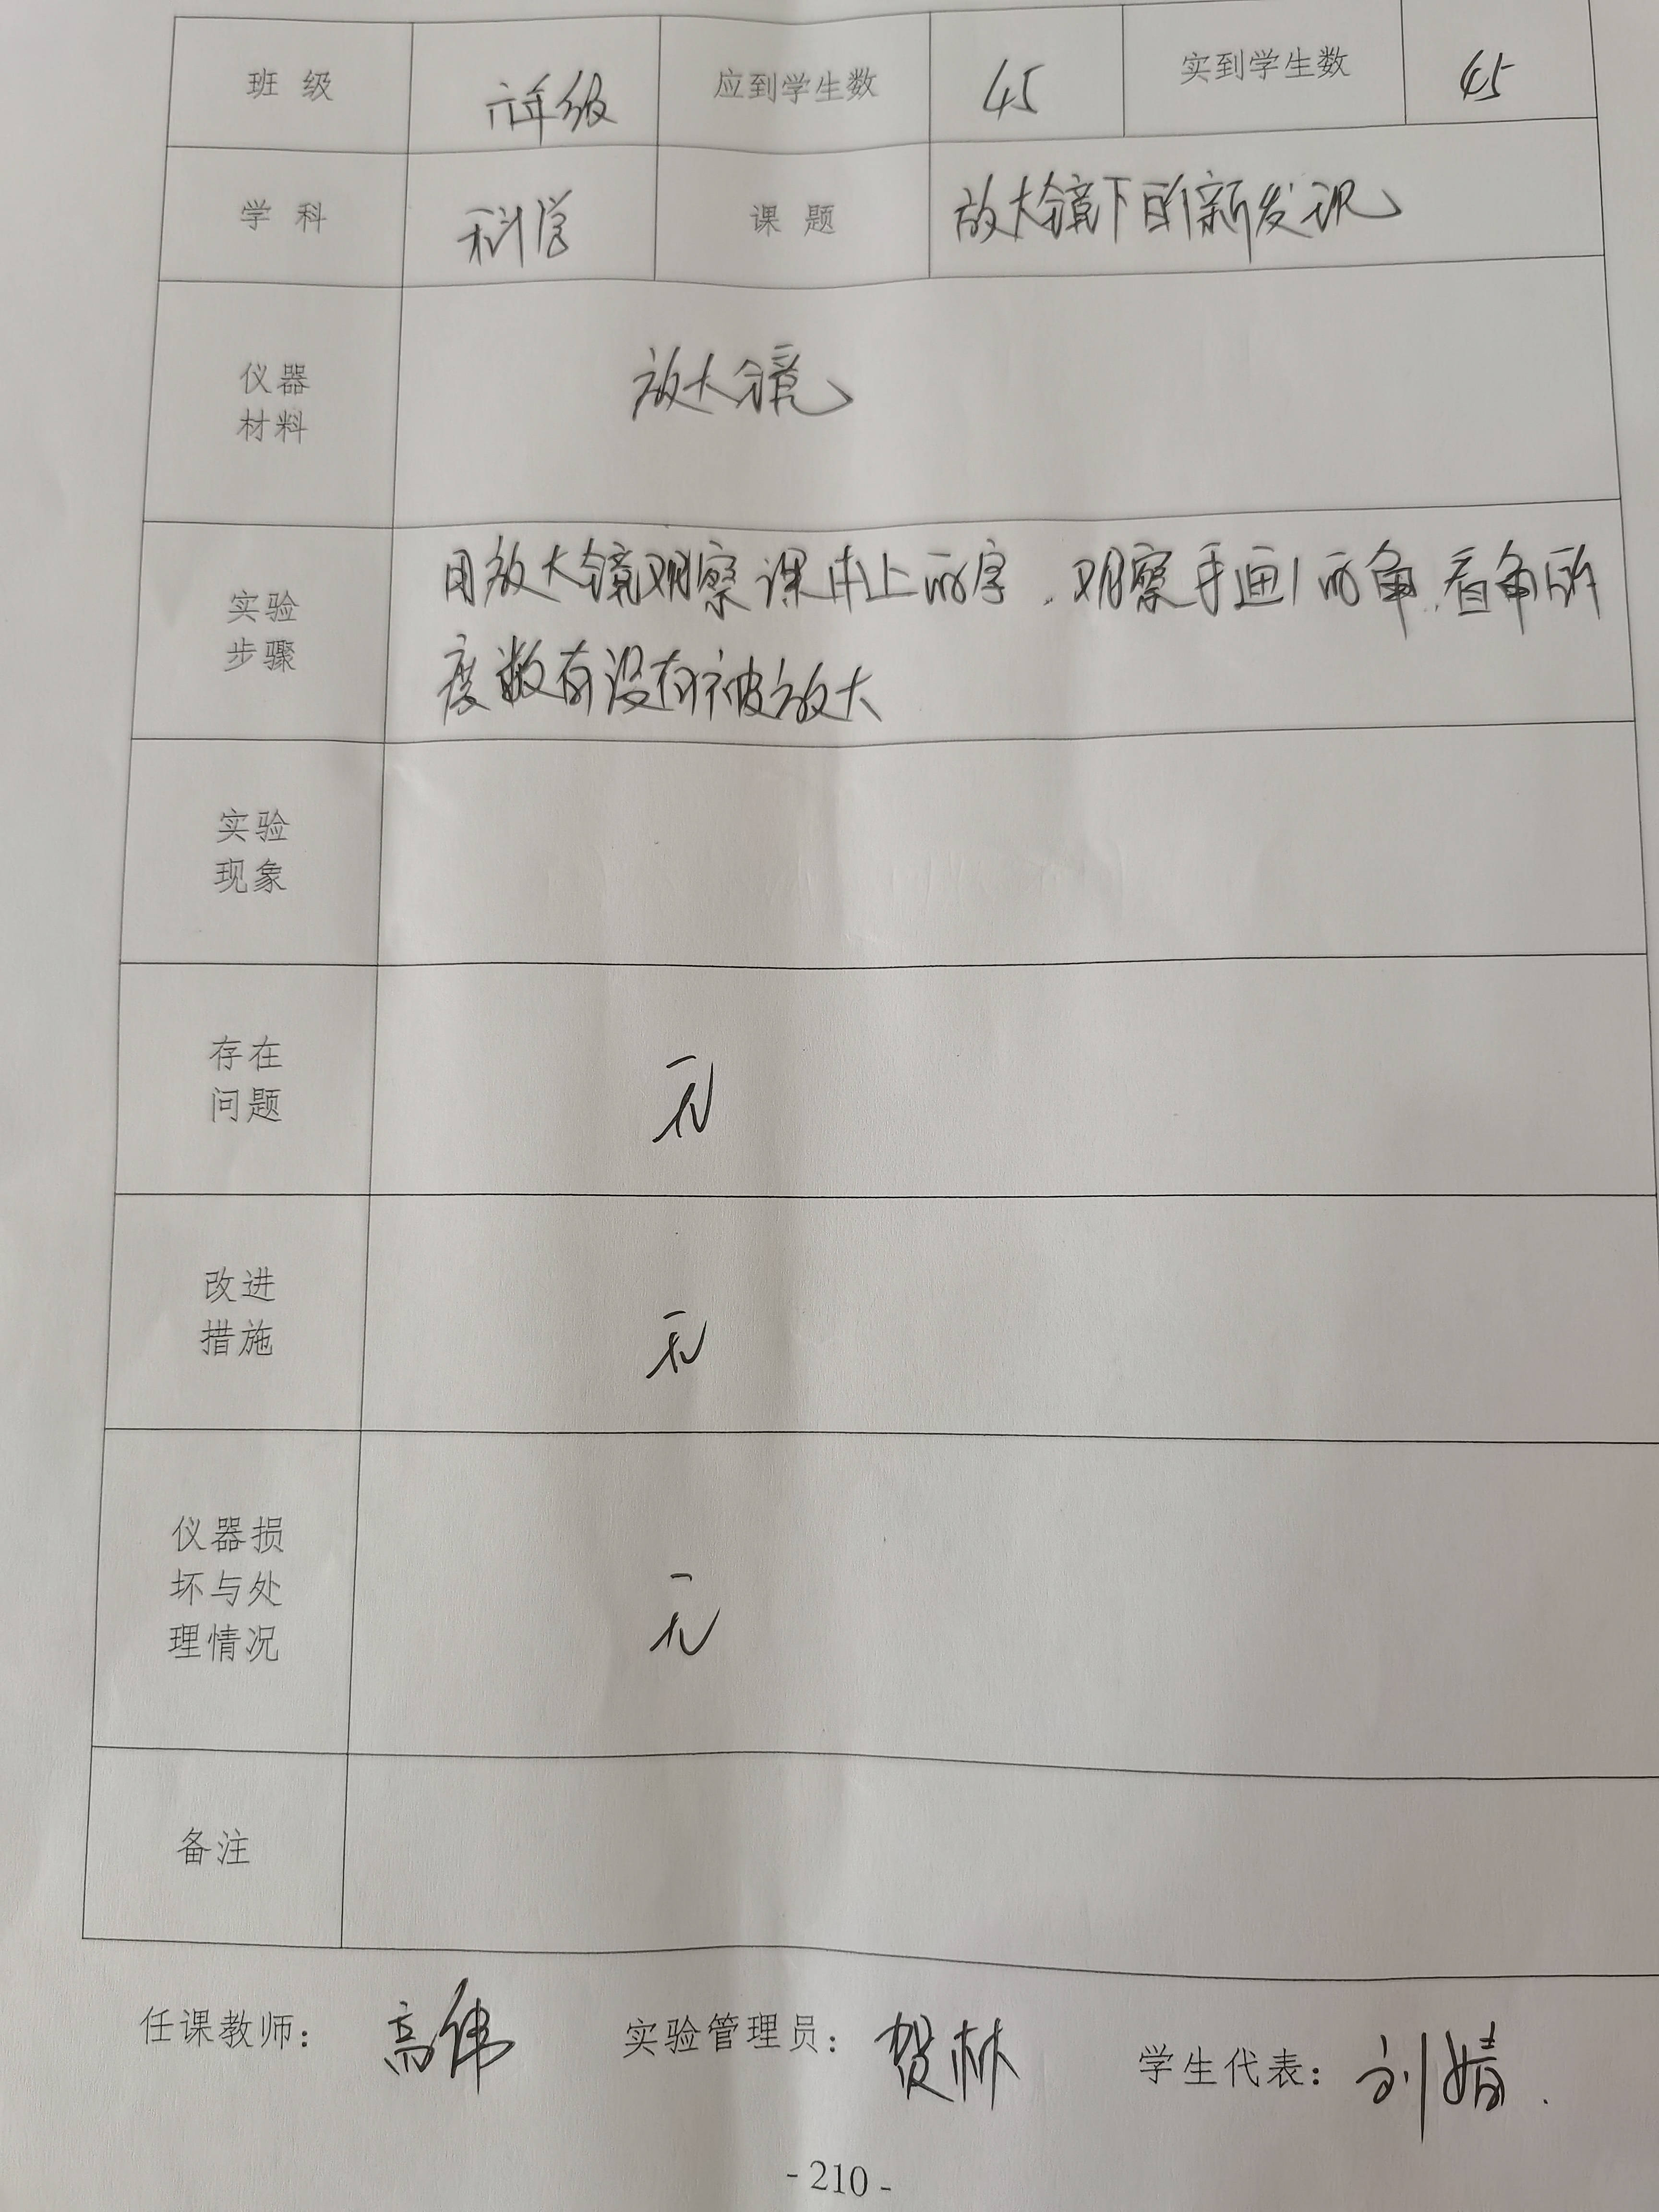 班 级 六年级 应到学生数 45 实到学生数 45
学 科 科学 课 题 放大镜下的新发现
仪器
材料
放大镜
实验
步骤
用放大镜观察课本上的字，观察手画的角，看角的
度数有没有被放大
实验
现象
存在
问题
无
改进
措施
无
仪器损
坏与处
理情况
无
备注
任课教师： 高伟 实验管理员： 贺林 学生代表： 刘婧
- 210 -